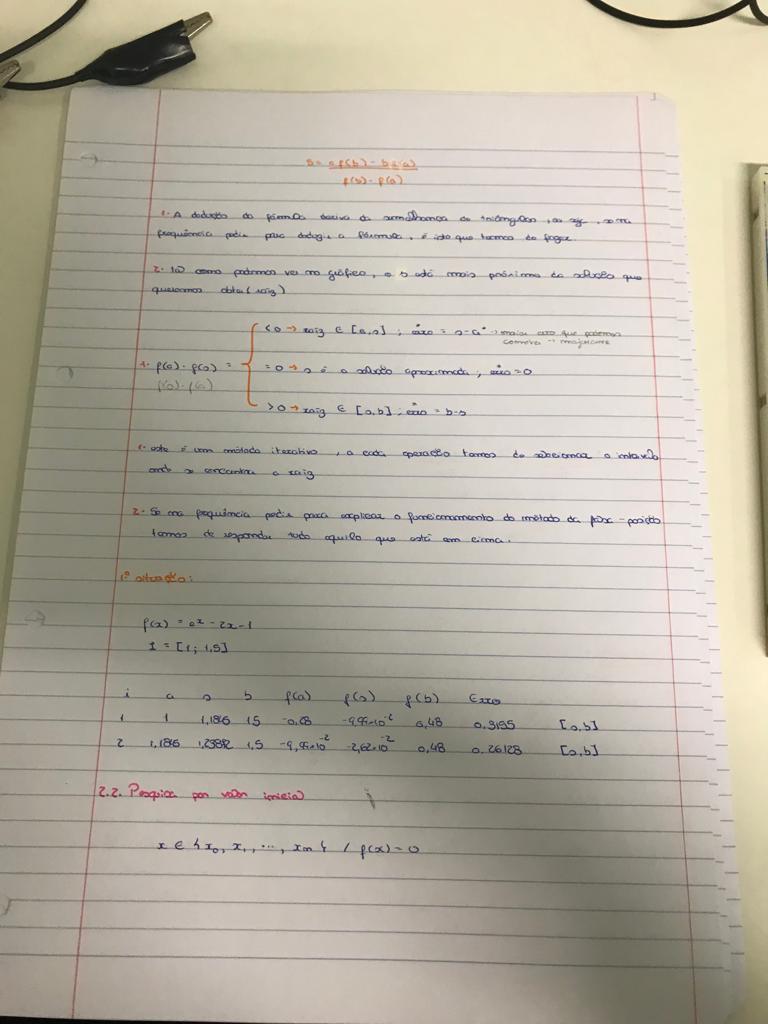 s = a f(b) - b f(a)
f(b) - f(a)
1. A dedução da fórmula deriva da semelhança de triângulos, ou seja, se na
frequência pedir para deduzir a fórmula, é isto que temos de fazer.
2. Tal como podemos ver no gráfico, o s está mais próximo da solução que
queremos obter (raiz)
<0 → raiz ∈ [a,s] ; erro = s-a → maior erro que podemos
cometer → majorante
1. f(a) . f(s) = =0 → s é a solução aproximada ; erro = 0
f(s) . f(a)
>0 → raiz ∈ [s,b] ; erro = b-s
1. este é um método iterativo, a cada operação temos de selecionar o intervalo
onde se encontra a raiz
2. Se na frequência pedir para explicar o funcionamento do método da falsa-posição
temos de responder tudo aquilo que está em cima.
1ª situação:
f(x) = e^x - 2x - 1
I = [1; 1,5]
i a s b f(a) f(s) f(b) Erro
1 1 1,1845 1,5 -0,28 -9,95×10^-2 0,48 0,3155 [s,b]
2 1,1845 1,5 -9,95×10^-2 -2,62×10^-2 0,48 0,26128 [s,b]
2.2. Pesquisa por valor inicial
x ∈ {x0, x1, ..., xn} / f(x) = 0